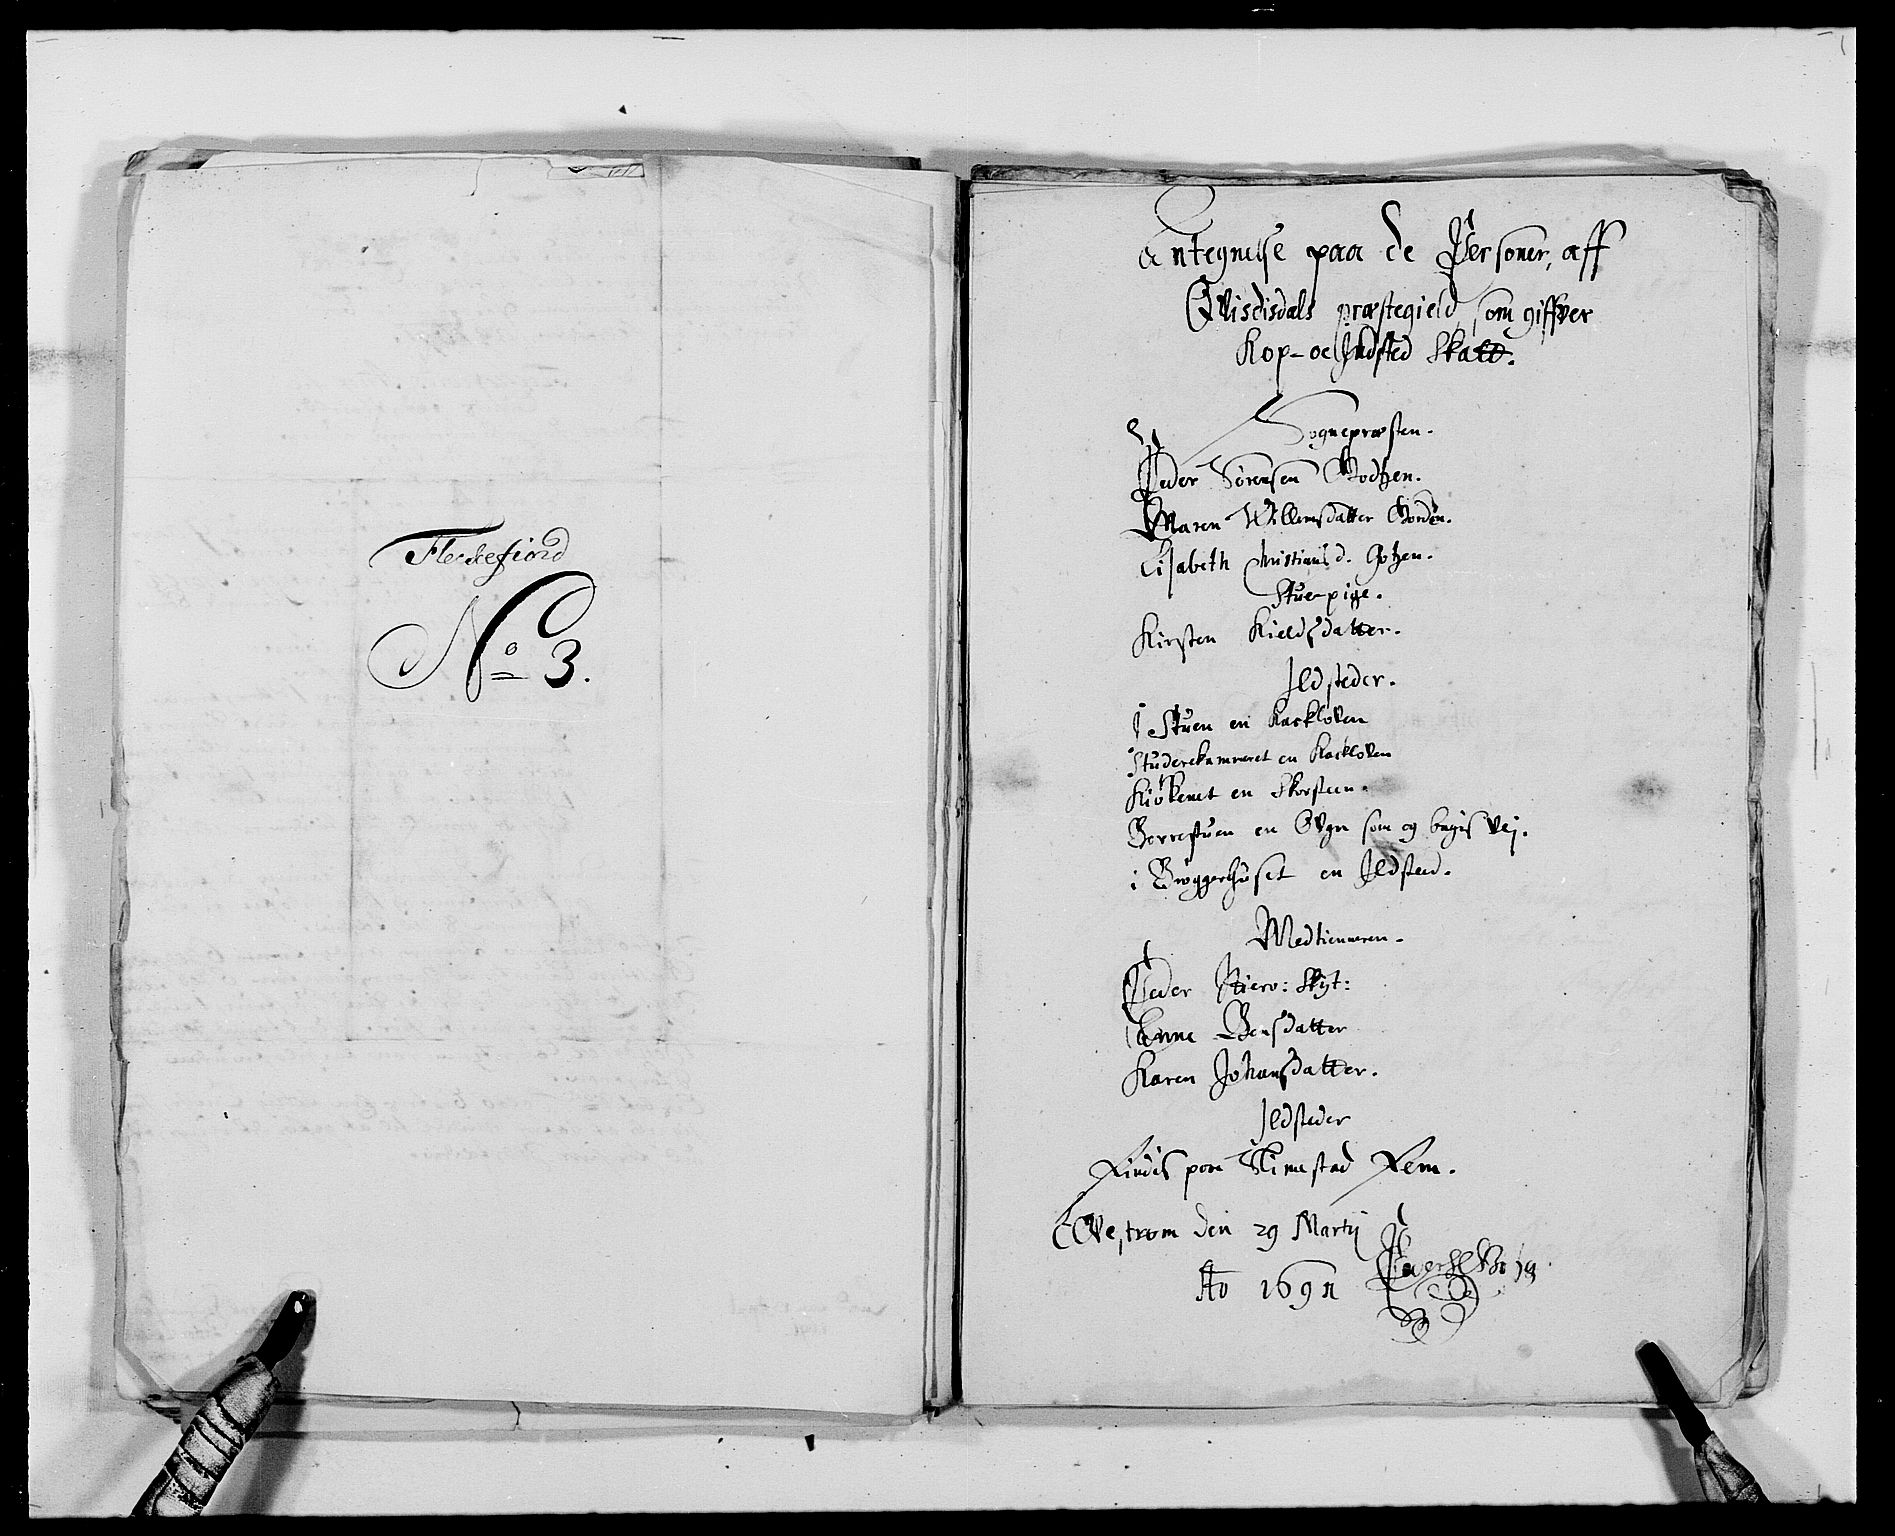 Fleckefiord
No 3.
Antegnelse paa de Personer, aff
Qvisdisdals præstegield, som giffver
Kop- oc Jldsted Skatt.
Sognepræsten.
Peder Sörensen Godtzen.
Maren Willemsdatter Gorden.
Elisabeth Christians d. Gotzen.
Stue-pige.
Kirsten Kieldsdatter.
Jldsteder.
J Stuen en Kackloven
Studerekammeret en Kackloven
Kiökenet en Skorsteen.
Borrestuen en Ovgn som og
i Bryggerhuset en Jldsted.
Medtienneren.
Peder
Anne Bensdatter
Karen Johansdatter.
Jldsteder
Findis paa Slimestad Fem.
den 29 Martij
Ao 1691